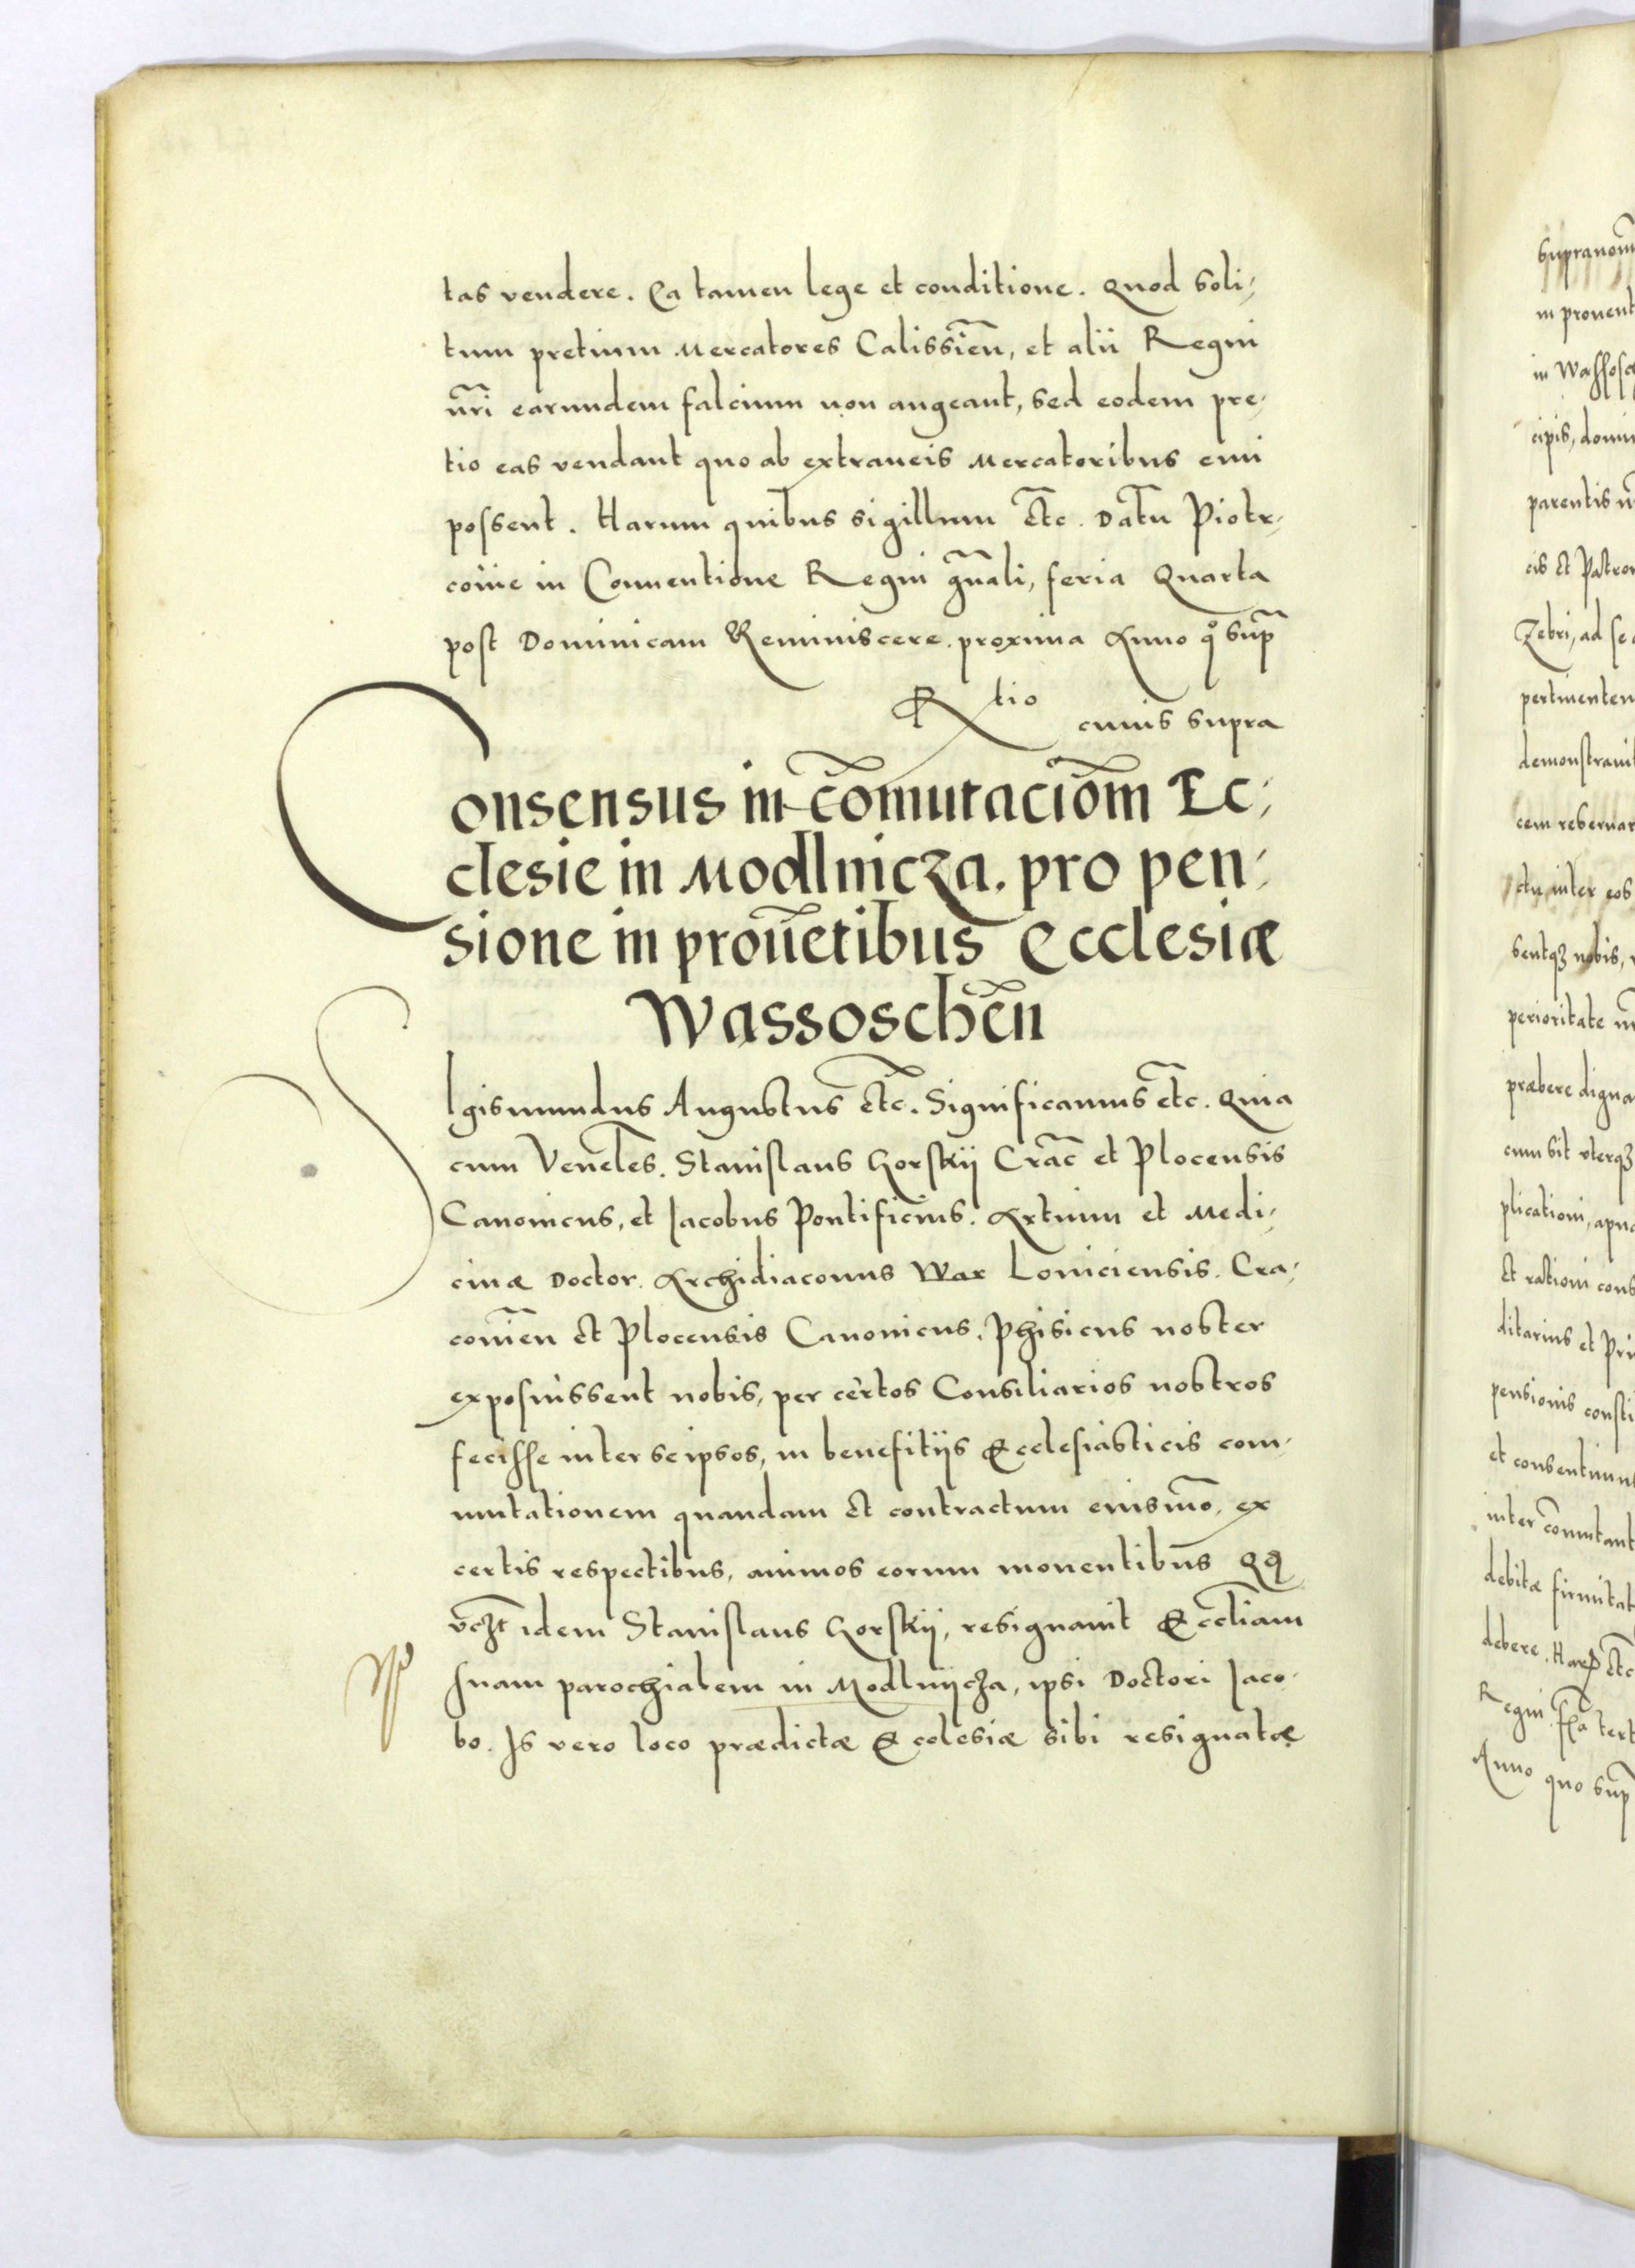 tas vendere. Ea tamen lege et conditione. Quod soli-
tum pretium Mercatores Calissieñ, et alii Regni
nr̃i earundem falcium non augeant, sed eodem pre-
tio eas vendant quo ab extraneis Mercatoribus emi
possent. Harum quibus sigillum etc̃. Datũ Piotr-
coviæ in Conventione Regni gñali, feria Quarta
post Dominicam Reminiscere. proxima Anno qͦ sup̃
Rtio
cuius supra
Consensus in com̃utaciom̃ Ec-
clesie in Modlnicza. pro pen-
sione in prouẽtibus Ecclesiæ
Wassoscheñ
SIgismundus Augustus etc̃. Significamus etc̃. Quia
cum Veneles̃. Stanislaus Horskij Crac̃ et Plocensis
Canonicus, et Jacobus Pontificius. Artium et Medi-
cinæ Doctor. Archidiaconus War Loviciensis. Cra-
covieñ et Plocensis Canonicus. Phisicus noster
exposuissent nobis, per certos Consiliarios nostros
fecisse inter seipsos, in benefitijs Ecclesiasticis com-
mutationem quandam et contractum eiusmõ, ex
certis respectibus, animos eorum moventibus Qq
vczt̃ idem Stanislaus Horskij, resignavit Eccliam̃
suam parochialem in Modlnijcza, ipsi Doctori Jaco-
bo. Is vero loco prædictæ Ecclesiæ sibi resignatæ
supranom̃
in provent
in Wassosch
cipis, domi
parentis n
cis et Patron
Zebri, ad se
pertinentem
demonstravit
cem reservar
ctu inter eos
sentqȝ nobis,
perioritate nr
præbere digna
cum sit uterqȝ
plicationi, apud
et rationi cons
ditarius et Pri
pensionis consti
et consentimus
inter com̃utant
debitæ firmitat
debere. Harꝝ etc
Regni. fr̃a tert
Anno quo sup̃